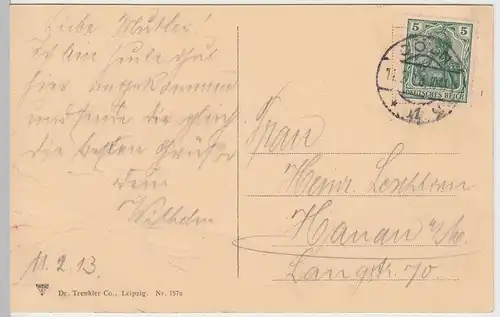 Liebe Mutter!
Ich bin heute
hier angekommen
und sende dir gleich
die besten Grüße
dein
Wilhelm
11.2.13.
5 5
DEUTSCHES REICH
Frau
Heinr.
Hanau a/M.
Langstr. 70.
Dr. Trenkler Co., Leipzig. Nr. 157a